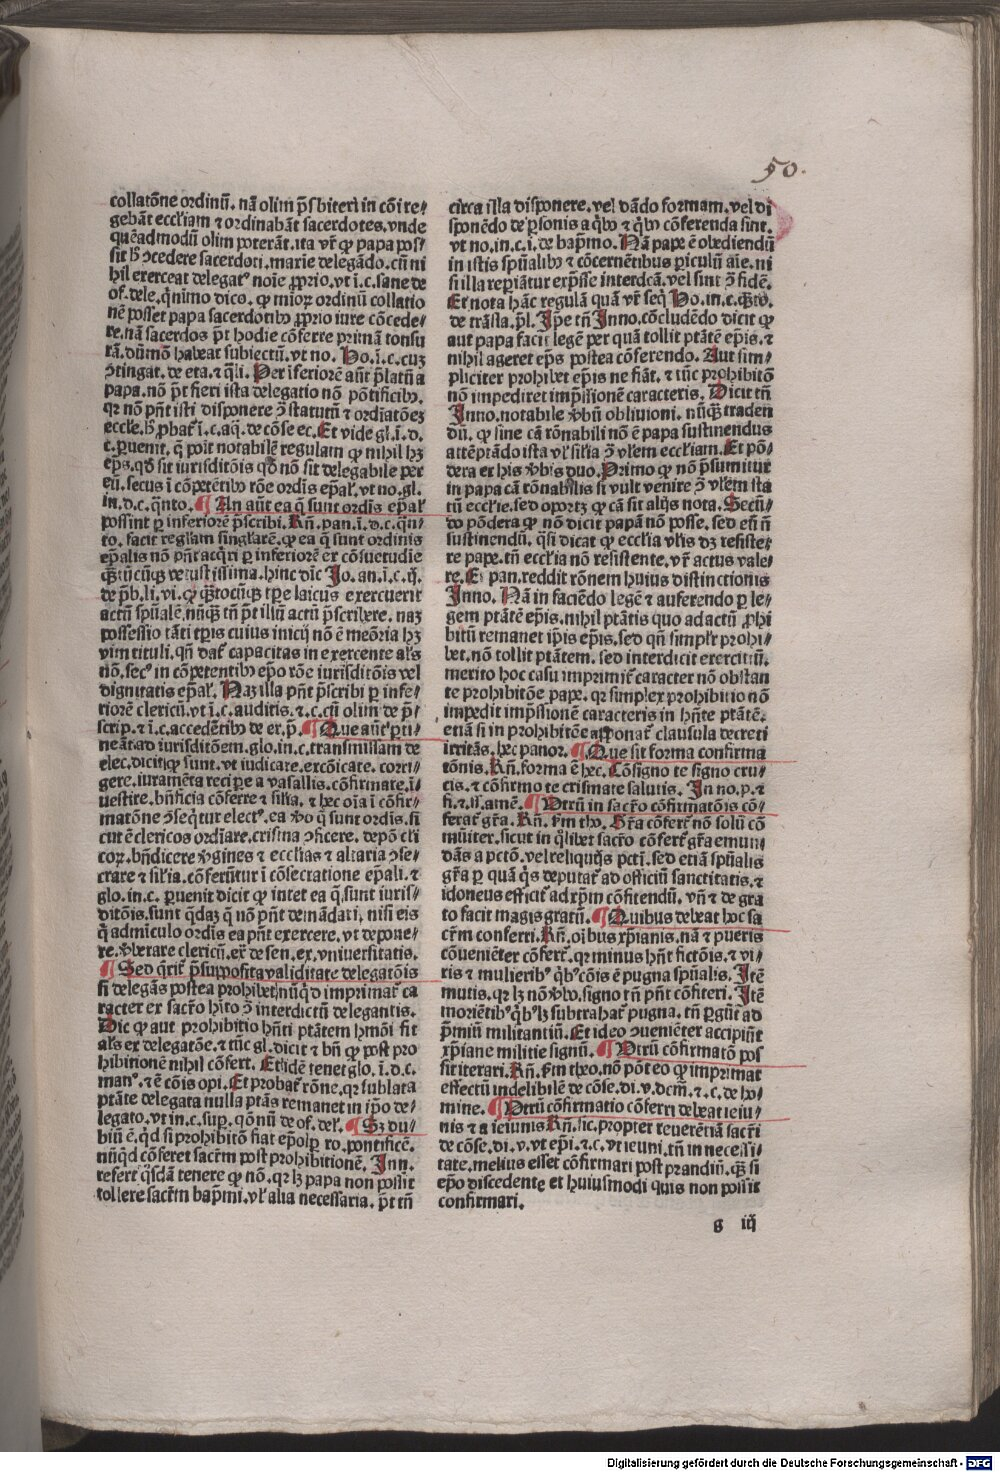 50.
collatōne ordinū. nā olim p̄sbiteri in cōi re⸗
gebāt eccl'iam ⁊ ordinabāt sacerdotes. vnde
quēadmodū olim poterāt. ita vr̄ ꝙ papa pos⸗
sit hͦ ↄcedere sacerdoti. maxīe delegādo. cū ni
hil exerceat delegatꝰ noīe ꝓprio. vt ī. c. sane de
of. dele. q̄nimo dico. ꝙ mīorꝝ ordinū collatio
nē posset papa sacerdotibꝰ ꝓprio iure cōcede⸗
re. nā sacerdos p̄t hodie cōferre primā tonsu
rā. dūmō habeat subiectū. vt no. Ho. ī. c. cuꝫ
ↄtingat. de eta. ⁊ q̄li. Per īferiorē aūt p̄latū a
papa. nō p̄t fieri ista delegatio nō pōtificibꝰ.
qꝛ nō pn̄t isti disponere ↄ̄ statutū ⁊ ordīatōeꝫ
eccl'e. hͦ ꝓbat' ī. c. aq̄. de cōse ec. Et vide gl. ī. d.
c. ꝑuenit. q̄ poīt notabilē regulam ꝙ nihil hꝫ
ep̄s. qd̄ sit iurisditōis qd̄ nō sit delegabile per
eū. secus ī cōpetētibꝰ rōe ordīs ep̄al'. vt no. gl.
in. d. c. q̄nto. ¶ An aūt ea q̄ sunt ordīs ep̄al'
possint ꝑ inferiorē p̄scribi. Rn̄. pan. ī. d. c. q̄n⸗
to. facit reglam singlarē. ꝙ ea q̄ sunt ordinis
ep̄alis nō pn̄t acq̄ri ꝑ inferiorē ex cōsuetudīe
qͣꝫtūcūqꝫ vetustissima. hinc dīc Jo. an. ī. c. ij.
de p̄b. li. vi. ꝙ qͣꝫtocūqꝫ tp̄e laicus exercuerit
actū spūalē. nūqͣꝫ tn̄ p̄t illū actū p̄scribere. naꝫ
possessio tāti tp̄is cuius inicij nō ē meōria hꝫ
vim tituli. qn̄ dat' capacitas in exercente al's
nō. secꝰ in cōpetentibꝰ epō rōe iurisditōis vel
dignitatis ep̄al'. Naꝫ illa pn̄t p̄scribi ꝑ infe⸗
riorē clericū. vt ī. c. auditis. ⁊. c. cū olim de p̄⸗
scrip. ⁊ ī. c. accedētibꝰ de ex. p̄. ¶ Que aūt' ꝑti⸗
neāt ad iurisditōem. glo. in. c. transmissam de
elec. dicit ꝙ sunt. vt iudicare. excōicare. corri⸗
gere. iuramēta recipere a vasallis. cōfirmare. ī⸗
uestire. bn̄ficia cōferre ⁊ silia. ⁊ hec oīa ī cōfir⸗
matōne ↄseq̄tur electꝰ. ea vͦo q̄ sunt ordīs. si
cut ē clericos ordīare. crisma ↄficere. depō cl'i
corꝝ. bn̄dicere v̓gines ⁊ eccl'ias ⁊ altaria ↄse⸗
crare ⁊ sil'ia. cōferūtur ī cōsecratione ep̄ali. ⁊
glo. in. c. ꝑuenit dicit ꝙ intet ea q̄ sunt iuris⸗
ditōis. sunt q̄daꝫ q̄ nō pn̄t demādari, nisi eis
q̄ admīculo ordīs ea pn̄t exercere. vt depone⸗
re. v̓berare clericū. ex̄ de sen. ex. vniuersitatis.
¶ Sed q̄rit' p̄supposita validitate delegatōis
si delegās postea prohibet. nūqͥd imprimat' ca
racter ex sacr̄o hīto ↄ̄ interdictū delegantis.
Dic ꝙ aut prohibitio hn̄ti ptātem hmōi fit
al's ex delegatōe. ⁊ tūc gl. dicit ⁊ bn̄ ꝙ post pro
hibitionē nihil cōfert. Et idē tenet glo. ī. d. c.
manꝰ. ⁊ ē cōis opi. Et probat' rōne. qꝛ sublata
ptāte delegata nulla ptās remanet in ip̄o de⸗
legato. vt in. c. sup. qōnū de of. del'. ¶ Sꝫ du⸗
biū ē. qͥd si prohibitō fiat ep̄o ꝑ ro. pontificē.
nūqͥd cōferet sacrm̄ post prohibitionē. Inn.
refert qͥsdā tenere ꝙ nō. qꝛ lꝫ papa non possit
tollere sacrm̄ bap̄mi. vl' alia necessaria. p̄t tn̄
circa illa disponere. vel dādo formam. vel di
sponēdo de ꝑsonis a qͥbꝰ ⁊ qͥbꝰ cōferenda sint.
vt no. in. c. i. de bap̄mo. Nā pape ē obediendū
in istis spūalibꝰ ⁊ cōcernētibus ꝑiculū aīe. ni
si illa reꝑiātur exp̄sse interdcā. vel sint ↄ̄ fidē.
Et nota hāc regulā quā vr̄ seq̄ Ho. in. c. qͣꝫto.
de trāsla. p̄l. Ip̄e tn̄ Inno. cōcludēdo dicit ꝙ
aut papa facit legē per quā tollit ptātē ep̄is. ⁊
nihil ageret ep̄s postea cōferendo. Aut sim⸗
pliciter prohibet ep̄is ne fiāt. ⁊ tūc prohibitō
nō impediret imp̄ssionē caracteris. Dicit tn̄
Inno. notabile v̓bū obliuioni. nūqͣꝫ traden
dū. ꝙ sine cā rōnabili nō ē papa sustinendus
attēptādo ista vl' sil'ia ↄ̄ vl'em eccl'iam. Et pō⸗
dera ex his v̓bis duo. Primo ꝙ nō p̄sumitur
in papa cā rōnabilis si vult venire ↄ̄ vl'em sta
tū eccl'ie. sed oportꝫ ꝙ cā sit aliq̄s nota. Secū⸗
do pōdera ꝙ nō dicit papā nō posse. sed eū nō
sustinendū. q̄si dicat ꝙ eccl'ia vl'is dꝫ resiste⸗
re pape. tn̄ eccl'ia nō resistente. vr̄ actus vale⸗
re. Et pan. reddit rōnem huius distinctionis
Inno. Nā in faciēdo legē ⁊ auferendo ꝑ le⸗
gem ptātē ep̄is. nihil ptātis quo ad actū ꝓhi
bitū remanet ip̄is ep̄is. sed qn̄ simpl'r prohi⸗
bet. nō tollit ptātem. sed interdicit exercitiū.
merito hoc casu imprimit' caracter nō obstan
te prohibitōe pape. qꝛ simplex prohibitio nō
impedit imp̄ssionē caracteris in hn̄te ptātē.
etiā si in prohibitōe apponat' clausula decreti
irritās. hec panor. ¶ Que sit forma confirma
tōnis. Rn̄. forma ē hec. Cōsigno te signo cru⸗
cis. ⁊ cōfirmo te crismate salutis. In no. p. ⁊
fi. ⁊. s. s. amē. ¶ Vtrū in sacr̄o cōfirmatōis cō⸗
ferat' gr̄a. Rn̄. fm tho. Gr̄a cōfert' nō solū cō
mūiter. sicut in qͥlibet sacr̄o cōfert' gr̄a emun⸗
dās a pctō. vel reliquijs pcti. sed etiā spūalis
gr̄a ꝑ quā qͥs deputat' ad officiū sanctitatis. ⁊
idoneus efficit' ad xp̄m cōfitendū. vn̄ ⁊ de gra
to facit magis gratū. ¶ Quibus debeat hoc sa
crm̄ conferri. Rn̄. oībus xp̄ianis. nā ⁊ pueris
cōueniēter cōfert'. qꝛ minus hn̄t fictōis. ⁊ vi⸗
ris ⁊ mulieribꝰ qͥbꝰ cōis ē pugna spūalis. Itē
mutis. qꝛ lꝫ nō v̓bo. signo tn̄ pn̄t cōfiteri. Itē
moriētibꝰ qͥbꝰ lꝫ subtrahat' pugna. tn̄ ꝑgūt ad
p̄miū militantiū. Et ideo ↄueniēter accipiūt
xp̄iane militie signū. ¶ Vtrū cōfirmatō pos
sit iterari. Rn̄. fm theo. nō pōt eo ꝙ imprimat
effectū indelibilē de cōse. di. v. dcm̄. ⁊. c. de ho⸗
mine. ¶ Vtrū cōfirmatio cōferri debeat ieiu⸗
nis ⁊ a ieiunis Rn̄. sic. propter reuerētiā sacr̄i
de cōse. di. v. vt ep̄i. ⁊. c. vt ieiuni. tn̄ in necessi⸗
tate. melius esset cōfirmari post prandiū. qͣꝫ si
ep̄o discedente et huiusmodi quis non possit
confirmari.
g iij
Digitalisierung gefördert durch die Deutsche Forschungsgemeinschaft - DFG